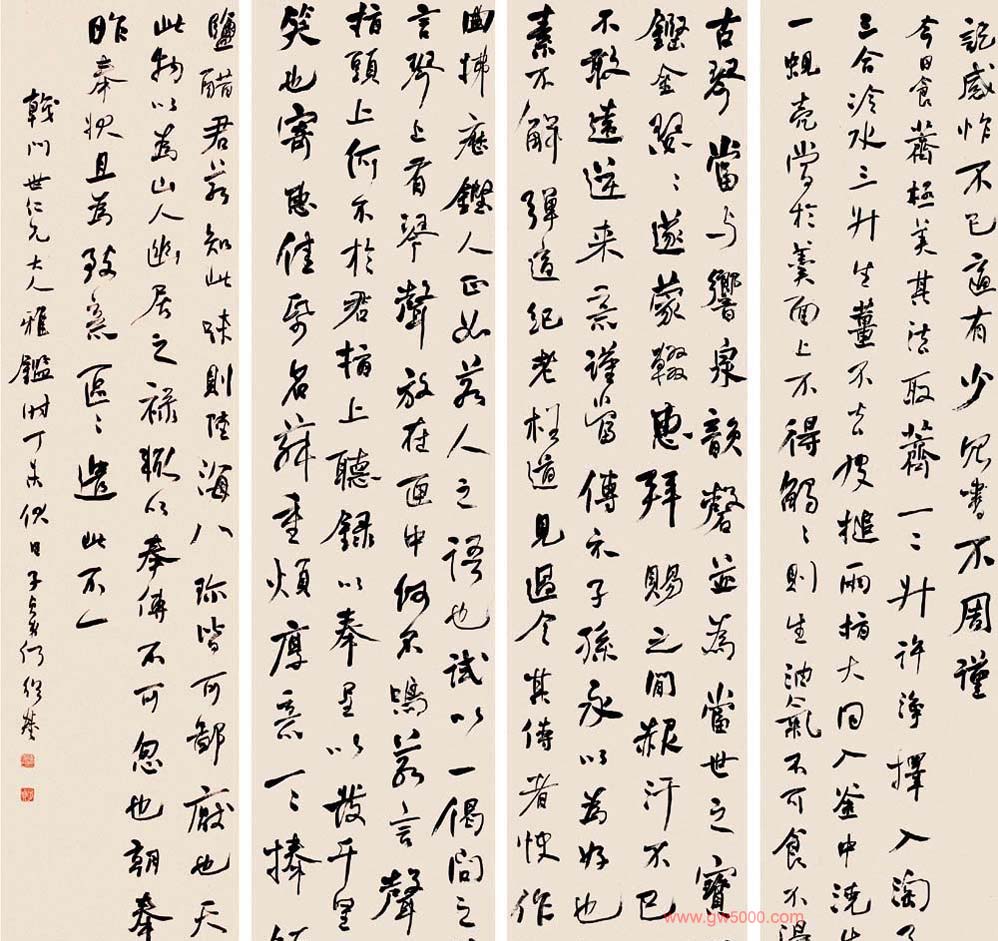 記感怍不已適有少冗書不周謹
今日食薺極美其法取薺一二升許淨擇入淘了
三合冷水三升生薑不去皮槌兩指大同入釜中澆生
一蜆壳當於羹面上不得觸觸則生油氣不可食不得
古琴當与響泉韻磬並為當世之寶
鏗金瑟瑟遂蒙輟惠拜賜之間赧汗不已
不敢遠逆来意謹當傳示子孫永以為好也
素不解彈適紀老枉道見過令其侍者快作
曲拂歷鏗人正如若人之語也試以一偈問之
言琴上有琴聲放在匣中何不鳴若言聲
指頭上何不於君指上聽録以奉呈以發千里
笑也寄惠佳紙名荈重煩厚意一一捧
鹽醋君若知此味則陸海八珍皆可鄙厭也天
此物以為山人幽居之禄輙以奉傳不可忽也朝奉
昨奉狀且為致意區區遣此不一
戟門世仁兄大人雅鑑時丁未伏日子貞何紹基
www.gw5000.com